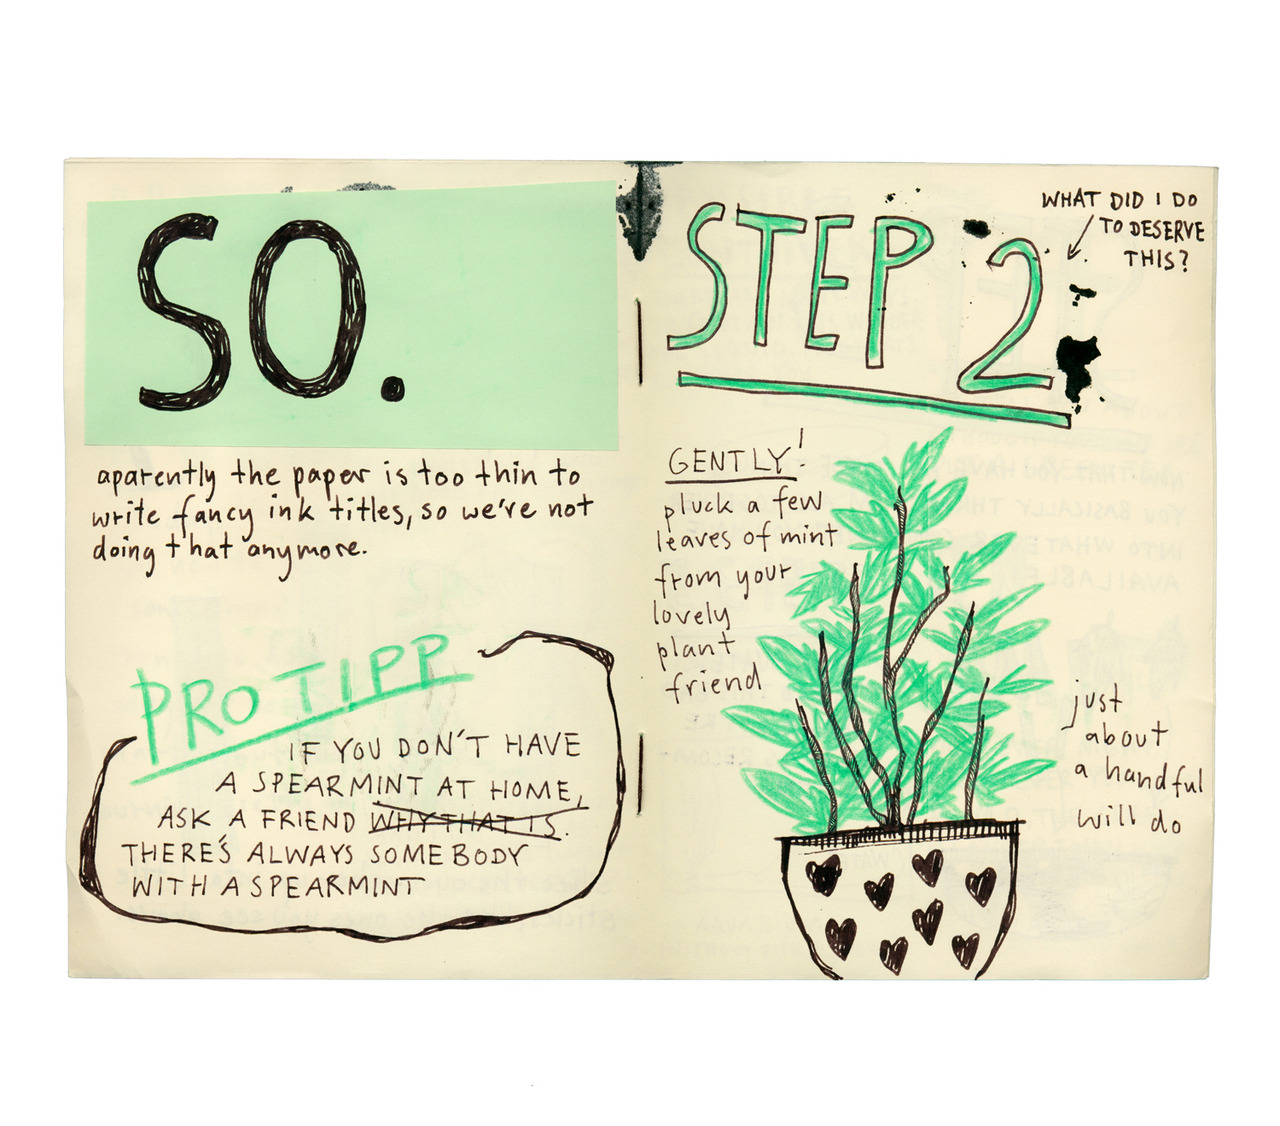 SO.
aparently the paper is too thin to
write fancy ink titles, so we're not
doing that anymore.
PRO TIPP
IF YOU DON'T HAVE
A SPEARMINT AT HOME,
ASK A FRIEND WHY THAT IS.
THERE'S ALWAYS SOMEBODY
WITH A SPEARMINT
STEP 2
WHAT DID I DO
TO DESERVE
THIS?
GENTLY!
pluck a few
leaves of mint
from your
lovely
plant
friend
just
about
a handful
will do